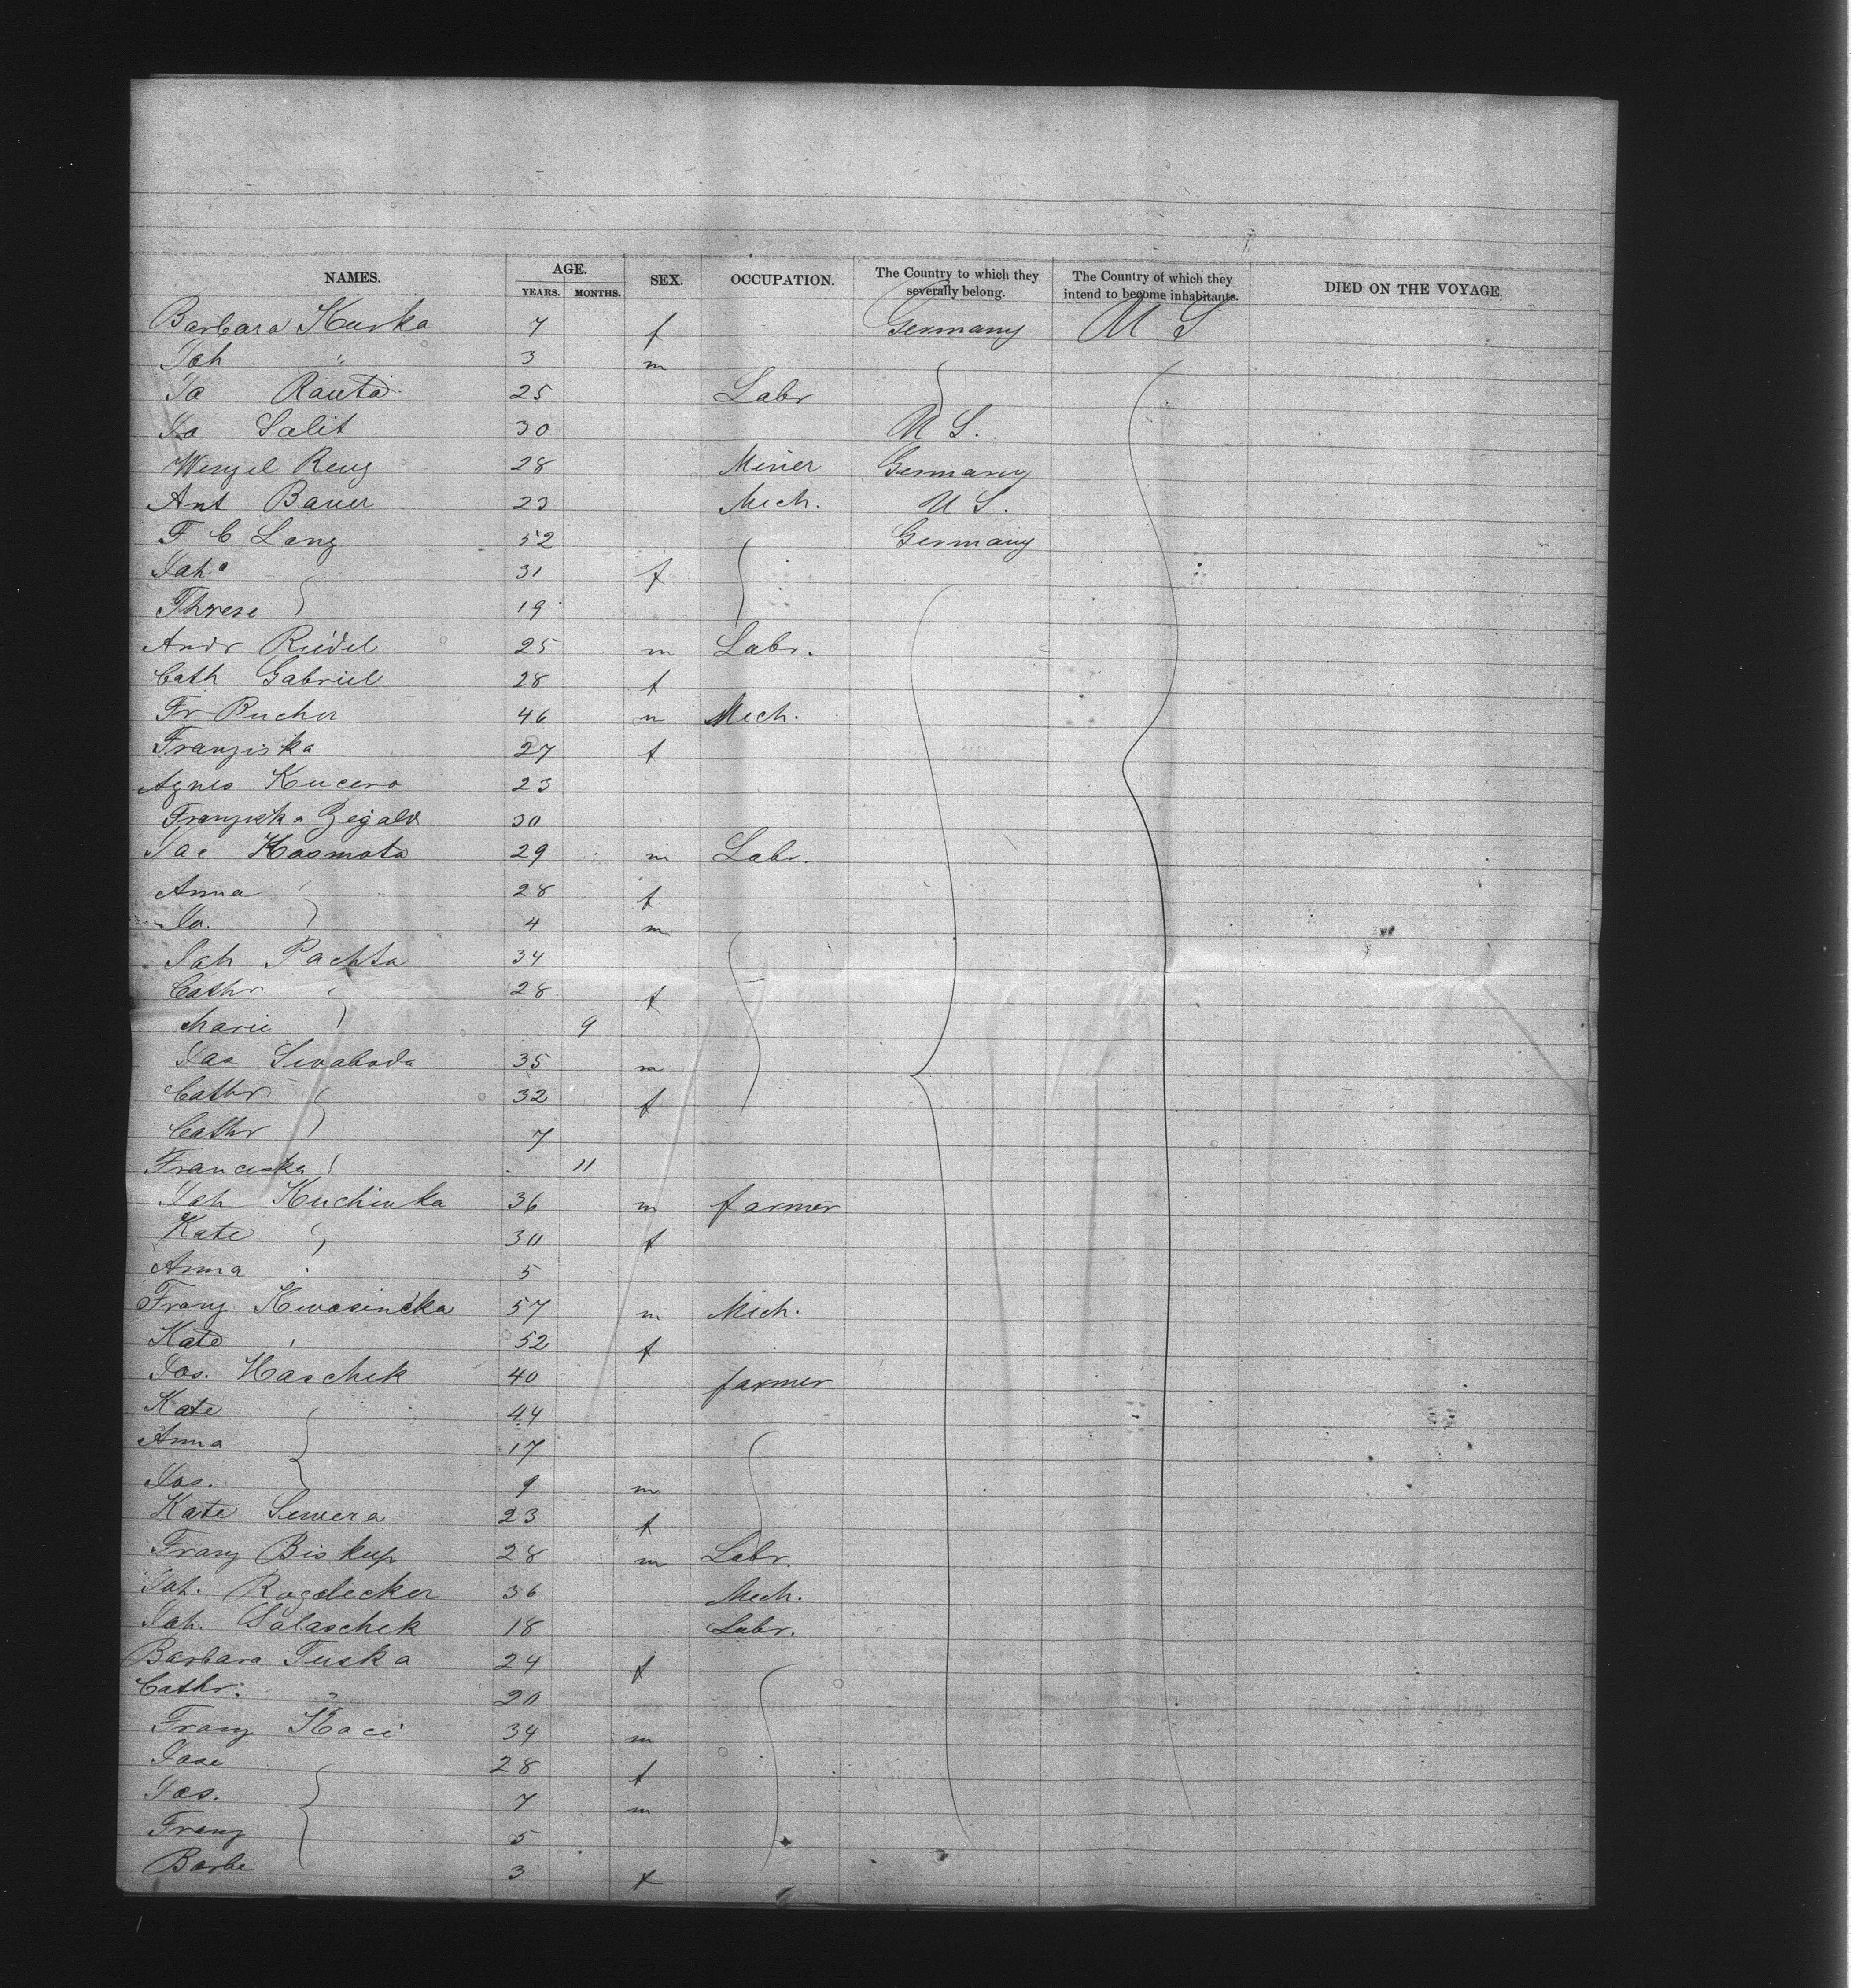 NAMES. AGE. YEARS. MONTHS. SEX. OCCUPATION. The Country to which they severally belong. The Country of which they intend to become inhabitants. DIED ON THE VOYAGE
Barbara Kurka 7 f Germany U S
Joh " 3 m
Jo Rauta 25 Labr
Jo Salit 30 U S.
Wenzel Reng 28 Miner Germany
Ant Bauer 23 Mech. U S.
F C Lang 52 Germany
Joha 31 f
Threse 19
Andr Riedel 25 m Labr.
Cath Gabriel 28 f
Fr Bucher 46 m Mech.
Franziska 27 f
Agnes Kucera 23
Franziska Zigald 30
Jac Kosmata 29 m Labr.
Anna 28 f
Jo. 4 m
Joh Pachta 34
Cathr 28 f
Marie 9
Jas Swaboda 35 m
Cathr 32 f
Cathr 7
Franciska 11
Joh Kuchinka 36 m farmer
Kate 30 f
Anna 5
Franz Kwasincka 57 m Mich.
Kate 52 f
Jos. Haschek 40 farmer
Kate 44
Anna 17
Jos. 9 m
Kate Sewera 23 f
Franz Biskup 28 m Labr.
Joh. Rogelecker 36 Mech.
Joh. Salaschek 18 Labr.
Barbara Tuska 24 f
Cathr. " 20
Franz Kaci 34 m
Jose 28 f
Jos. 7 m
Franz 5
Barbe 3 f